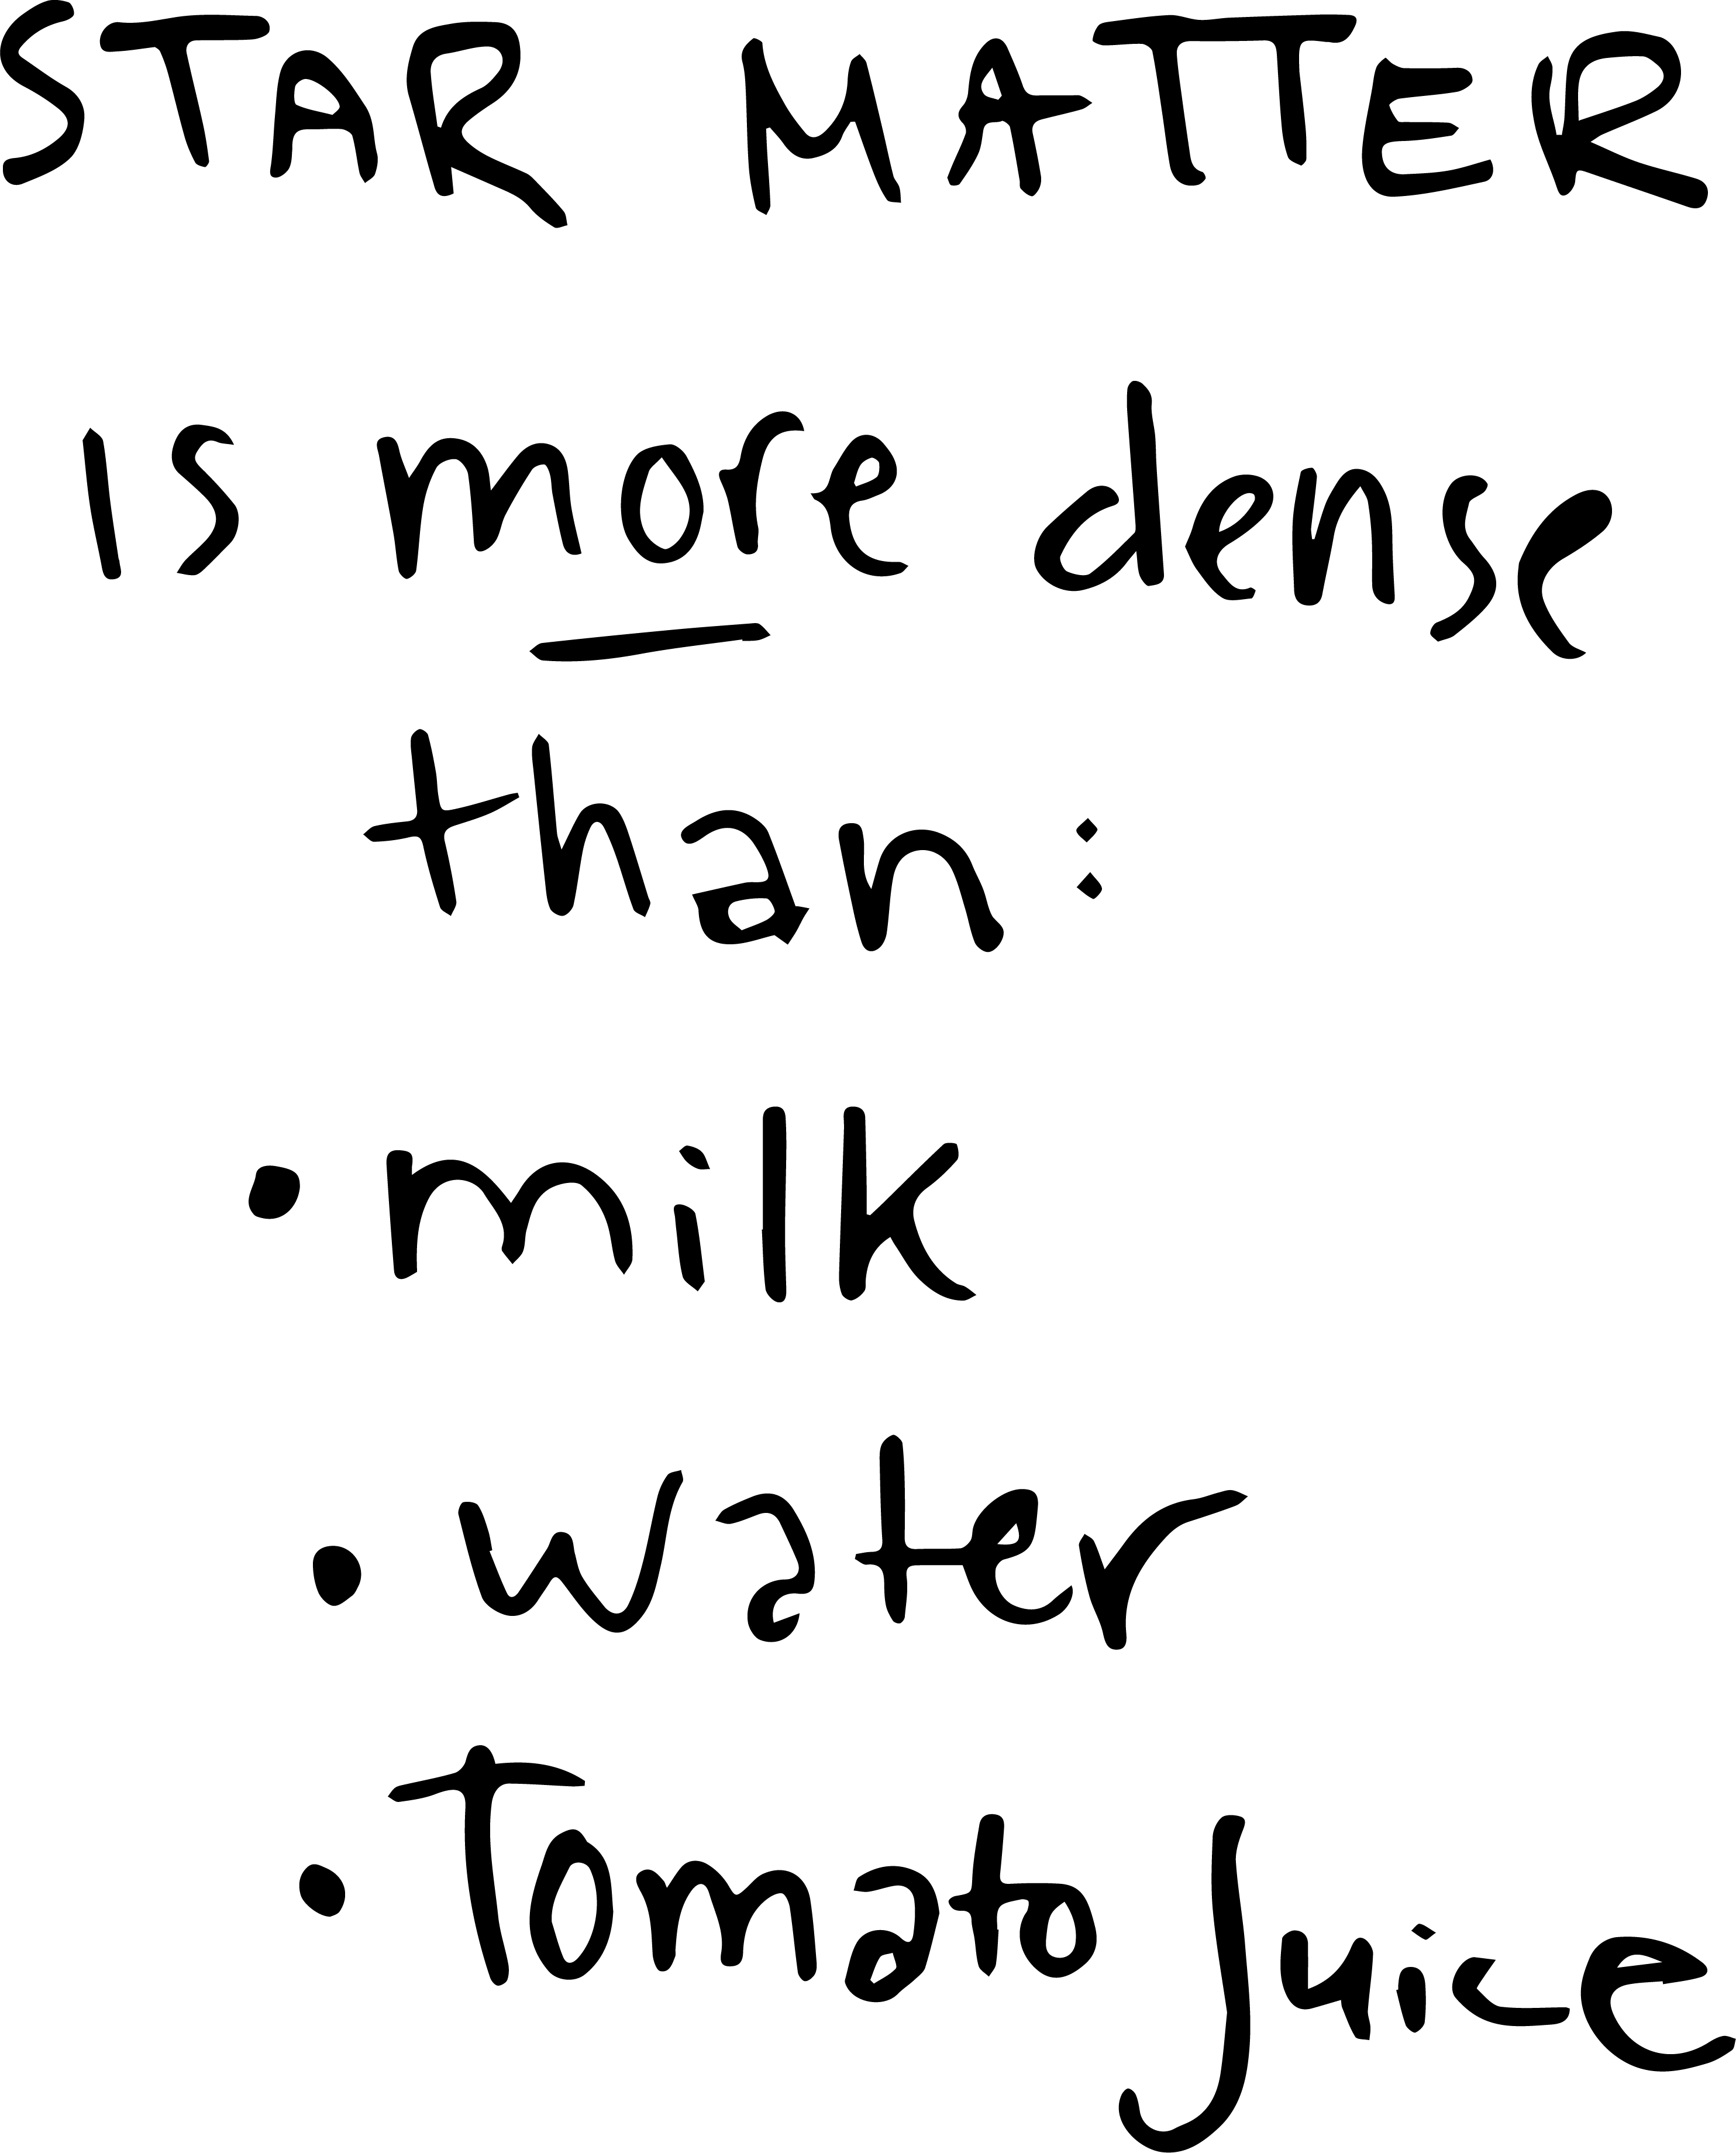 STAR MATTER
is more dense
than:
• milk
• water
• Tomato Juice